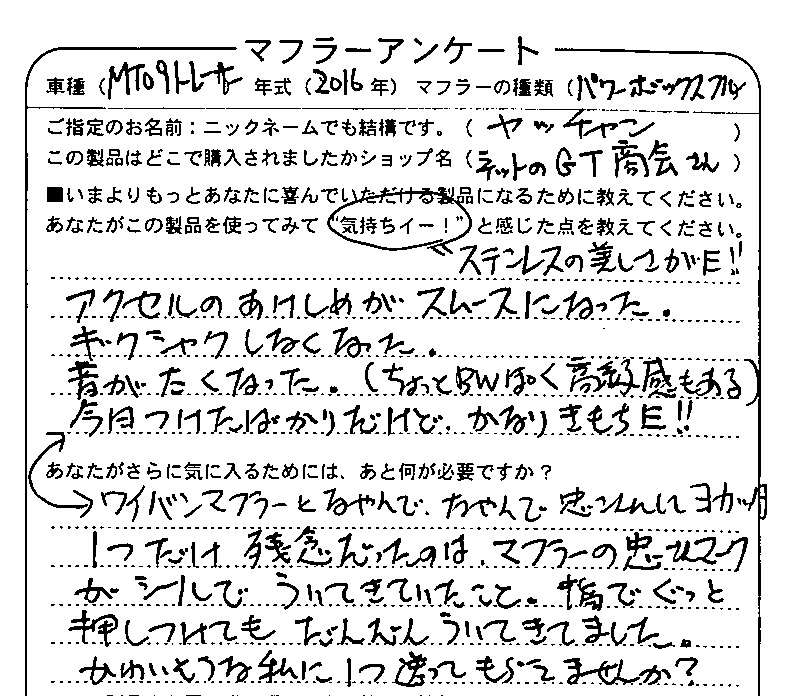 マフラーアンケート
車種(MT09トレーサー 年式(2016年) マフラーの種類(パワーボックスフル
ご指定のお名前:ニックネームでも結構です。( ヤッチャン )
この製品はどこで購入されましたかショップ名(ネットのGT商会さん)
■いまよりもっとあなたに喜んでいただける製品になるために教えてください。
あなたがこの製品を使ってみて "気持ちイー!" と感じた点を教えてください。
ステンレスの美しさがE!!
アクセルのあけしめがスムースになった。
ギクシャクしなくなった。
音がたくなった。(ちょっとBWぽく高級感もある)
今日つけたばかりだけど、かなりきもちE!!
あなたがさらに気に入るためには、あと何が必要ですか?
ワイバンマフラーとなやんで、なやんで 忠 してヨカッタ
1つだけ残念だったのは、マフラーの忠 マーク
がシールでういてきていたこと。指でぐっと
押しつけてもだんだんういてきてました。
かわいそうな私に1つ送ってもらえませんか?